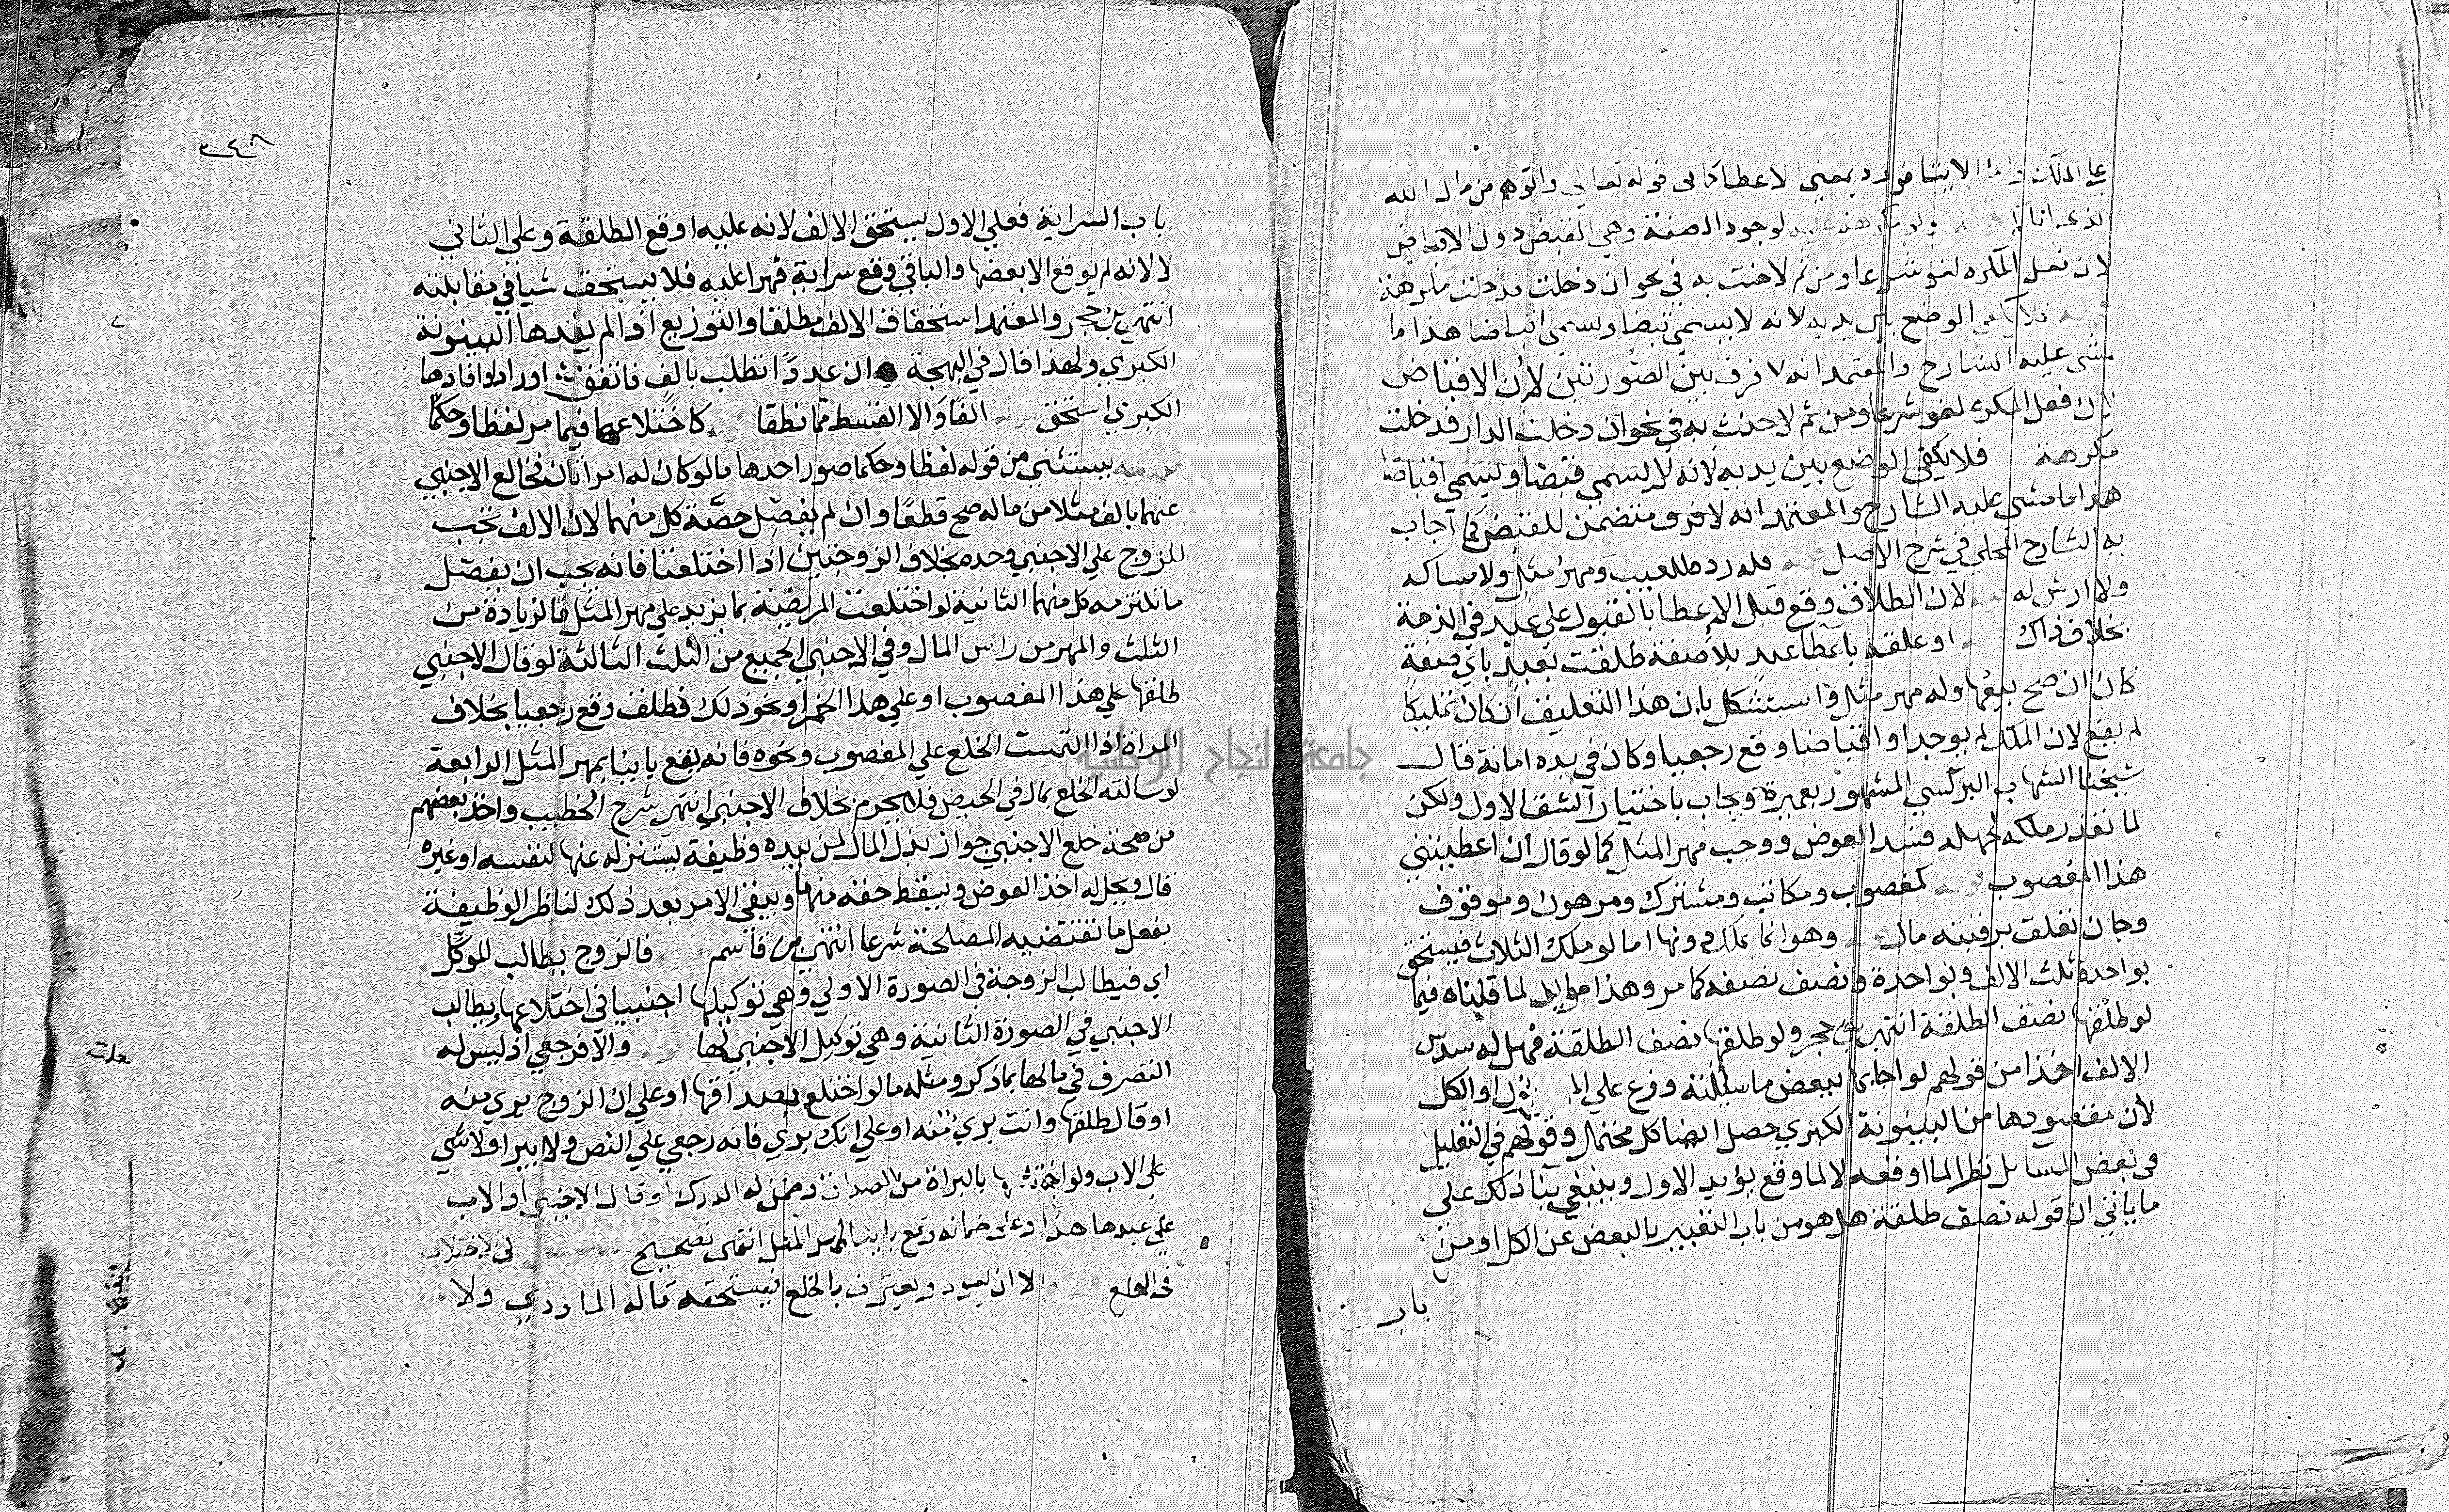 على الملك واما الايتا فورد بمعنى الاعطا كما في قوله تعالى واتوهم من مال الله
الذي اتاكم قوله ولو مكرهة عليه لوجود الصفة وهي القبض دون الاقباض
لان فعل المكره لغو شرعا ومن ثم لا حنث به في نحو ان دخلت فدخلت مكرهة
قوله فلا يكفي الوضع بين يديه لانه لا يسمى قبضا ويسمى اقباضا هذا ما
مشى عليه الشارح والمعتمد انه لا فرق بين الصورتين لان الاقباض
لان فعل المكره لغو شرعا ومن ثم لا حنث به في نحو ان دخلت الدار فدخلت
مكرهة فلا يكفي الوضع بين يديه لانه لا يسمى قبضا ويسمى اقباضا
هذا ما مشى عليه الشارح والمعتمد انه لا فرق متضمن للقبض كما اجاب
به الشارح المحلي في شرح الاصل قوله فله رده للعيب ومهر مثل ولا امساكه
ولا ارش له لان الطلاق وقع قبل الاعطا بالقبول على عبد في الذمة
بخلاف ذاك او علقه باعطا عبد بلا صفة طلقت بعبد باي صفة
كان ان صح بيعها وله مهر مثل واستشكل بان هذا التعليق ان كان تمليكا
لم يقع لان الملك لم يوجد او اقباضا وقع رجعيا وكان في يده امانة قال
شيخنا الشهاب البرلسي المشهور بعميرة ويجاب باختيار الشق الاول ولكن
لما تعذر ملكه لجهله فسد العوض ووجب مهر المثل كما لو قال ان اعطيتني
هذا المغصوب قوله كمغصوب ومكاتب ومشترك ومرهون وموقوف
وجان تعلق برقبته مال وهو انما يملك دونها اما لو ملك الثلاث فيستحق
بواحدة ثلث الالف وبواحدة ونصف نصفه كما مر وهذا مؤيد لما قلناه فيما
لو طلقها نصف الطلقة انتهى حجر ولو طلقها نصف الطلقة فهل له سدس
الالف اخذا من قولهم لو اجابها ببعض ما سألته وزع على او الكل
لان مقصودها من البينونة الكبرى حصل ايضا كل محتمل وقولهم في التعليل
في بعض المسائل نظرا لما اوقعه لا لما وقع يؤيد الاول وينبغي بنا ذلك على
ما ياتي ان قوله نصف طلقة هل هو من باب التعبير بالبعض عن الكل او من
باب
٣٤٦
باب السراية فعلى الاول يستحق الالف لانه عليه اوقع الطلقة وعلى الثاني
لا لانه لم يوقع الا بعضها والباقي وقع سراية قهرا عليه فلا يستحق شيا في مقابلته
انتهى حجر والمعتمد استحقاق الالف مطلقا والتوزيع اذا لم يفدها البينونة
الكبرى ولهذا قال في البهجة ان عددا تطلب بالف فاتفقت او زاد او افادها
الكبرى استحق الفا والا القسط مما نطقا كاختلاعهما فيما مر لفظا وحكما
يستثنى من قوله لفظا وحكما صور احدها ما لو كان له امراتان فخالع الاجنبي
عنهما بالف مثلا من ماله صح قطعا وان لم يفصل حصة كل منهما لان الالف تجب
للزوج على الاجنبي وحده بخلاف الزوجتين اذا اختلعتا فانه يجب ان يفصل
ما تلتزمه كل منهما الثانية لو اختلعت المريضة بما يزيد على مهر المثل فالزيادة من
الثلث والمهر من راس المال وفي الاجنبي الجميع من الثلث الثالثة لو قال الاجنبي
طلقها على هذا المغصوب او على هذا الخمر او نحو ذلك فطلق وقع رجعيا بخلاف
المراة اذا التمست الخلع على المغصوب ونحوه فانه يقع باينا بمهر المثل الرابعة
لو سالته الخلع بمال في الحيض فلا يحرم بخلاف الاجنبي انتهى شرح الخطيب واخذ بعضهم
من صحة خلع الاجنبي جواز بذل المال لمن بيده وظيفة يستنزله عنها لنفسه او غيره
قال ويحل له اخذ العوض ويسقط حقه منها ويبقى الامر بعد ذلك لناظر الوظيفة
يفعل ما تقتضيه المصلحة شرعا انتهى من قاسم فالزوج يطالب الموكل
اي فيطالب الزوجة في الصورة الاولى وهي توكيلها اجنبيا في اختلاعها ويطالب
الاجنبي في الصورة الثانية وهي توكيل الاجنبي لها والا فرجعي اذ ليس له
التصرف في مالها بما ذكر ومثله ما لو اختلع بصداقها او على ان الزوج بري منه
او قال طلقها وانت بري منه او على انك بري فانه رجعي على النص ولا يبرا ولا شي
على الاب ولو اختلعها بالبراة من الصداق وضمن له الدرك او قال الاجنبي او الاب
على عبدها هذا وعلي ضمانه وقع باينا بمهر المثل انتهى تصحيح في الاختلاف
في الخلع الا ان يعود ويعترف بالخلع فيستحقه قاله الماوردي ولا
جامعة النجاح الوطنية